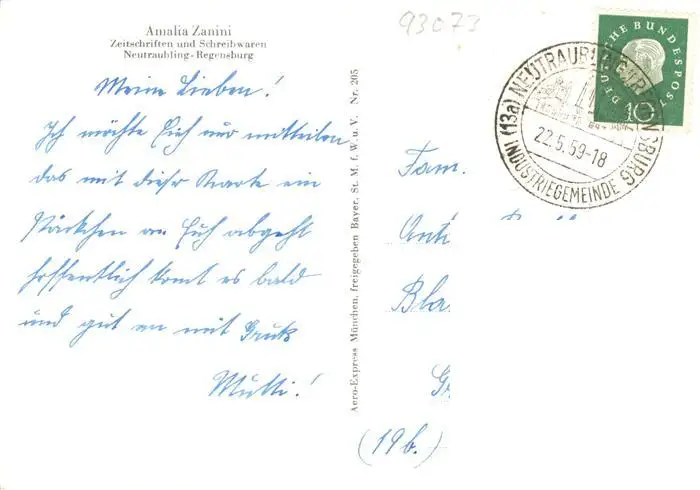 Amalia Zanini
Zeitschriften und Schreibwaren
Neutraubling-Regensburg
93073
Meine Lieben!
Ich möchte Euch nur mitteilen
das mit dieser Karte ein
Päckchen an Euch abgeht
hoffentlich komt es bald
und gut an mit Gruß
Mutti!
Aero-Express München, freigegeben Bayer. St. M. f. W. u. V. Nr. 205
DEUTSCHE BUNDESPOST
10
(13a) NEUTRAUBLING REGENSBURG
22.5.59-18
INDUSTRIEGEMEINDE
Fam.
Ant
Bla
G
(19b.)